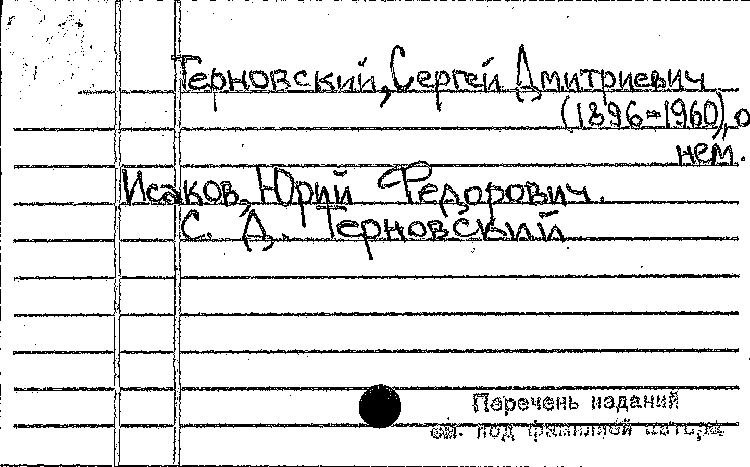 Терновский, Сергей Дмитриевич
(1896-1960), о
нем.
Исаков, Юрий Федорович.
С. Д. Терновский
Перечень изданий
см. под фамилией автора